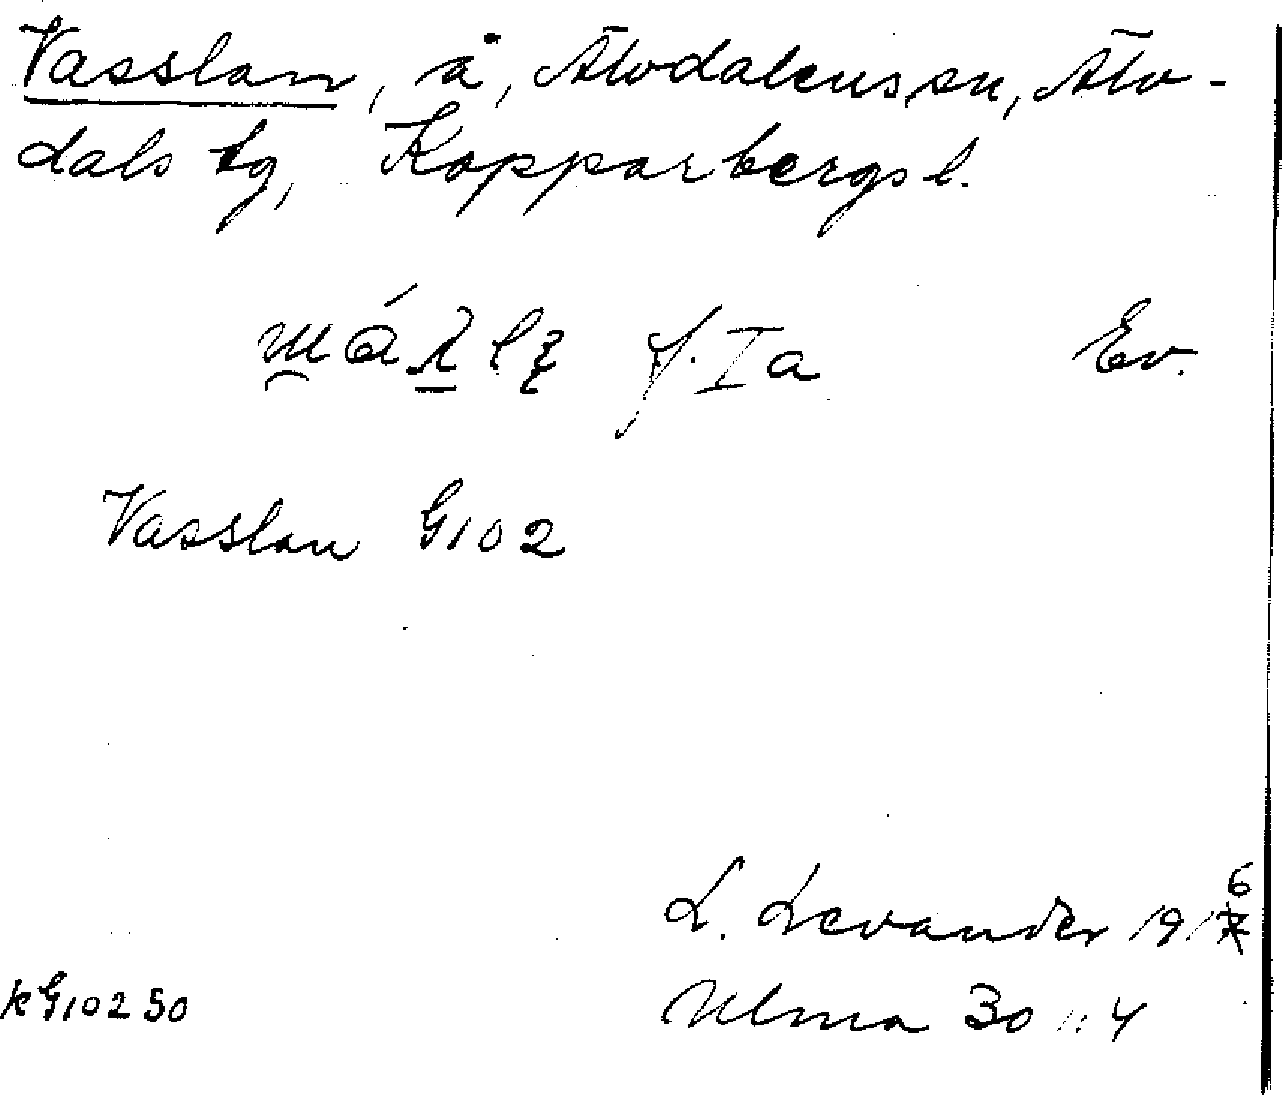 Vasslan, å, Älvdalens sn, Älv-
dals tg, Kopparbergs l.
f. Ia Ev.
Vasslan G102
L. Levander 1916
kG102 SO Ulma 30 : 4